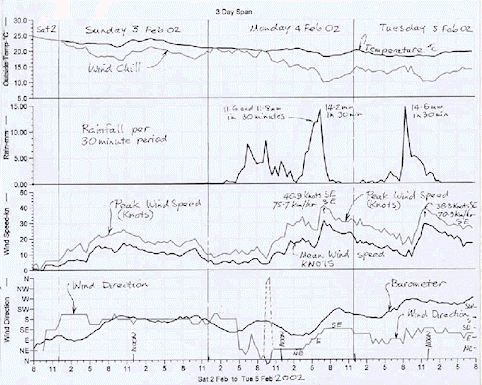 3 Day Span
Sat 2
Sunday 3 Feb 02
Monday 4 Feb 02
Tuesday 5 Feb 02
Outside Temp-°C
30.0
25.0
20.0
15.0
10.0
5.0
Temperature °C
Wind Chill
Rain-mm
15.00
10.00
5.00
0.00
Rainfall per
30 minute period
11.6 and 11.8mm
in 30 minutes
14.2mm
in 30 min
14.6mm
in 30 min
Wind Speed-kn
50
40
30
20
10
0
Peak Wind Speed
(Knots)
40.9 Knots SE
75.7 km/hr SE
Peak Wind Speed
(Knots)
38.3 Knots SE
70.9 km/hr
SE
Mean Wind speed
KNOTS
Wind Direction
N
NW
W
SW
S
SE
E
NE
N
Wind Direction
NOON
NE
E
SE
NOON
Barometer
Wind Direction
NOON
SW
S
SE
E
NE
8 11 2 5 8 11 2 5 8 11 2 5 8 11 2 5 8 11 2 5 8 11 2 5 8
Sat 2 Feb to Tue 5 Feb 2002